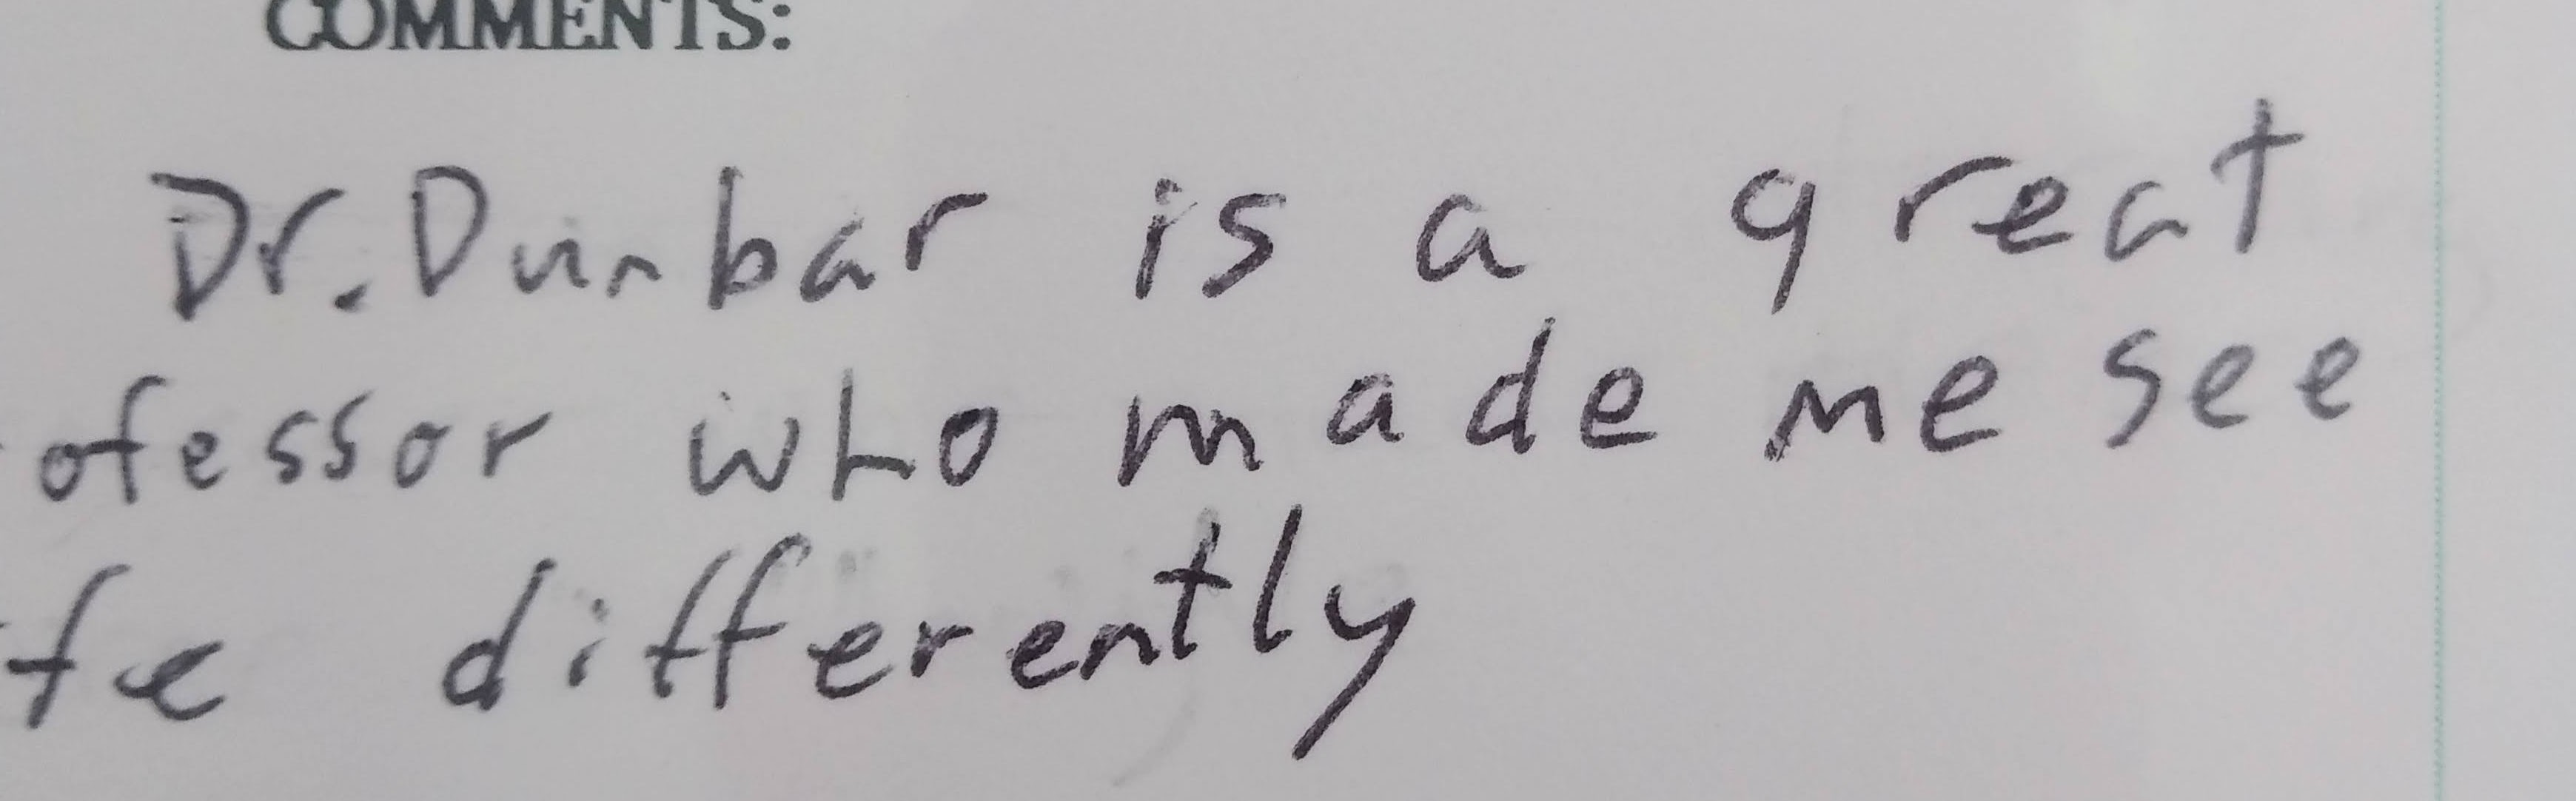 COMMENTS:
Dr. Dunbar is a great
ofessor who made me see
fe differently